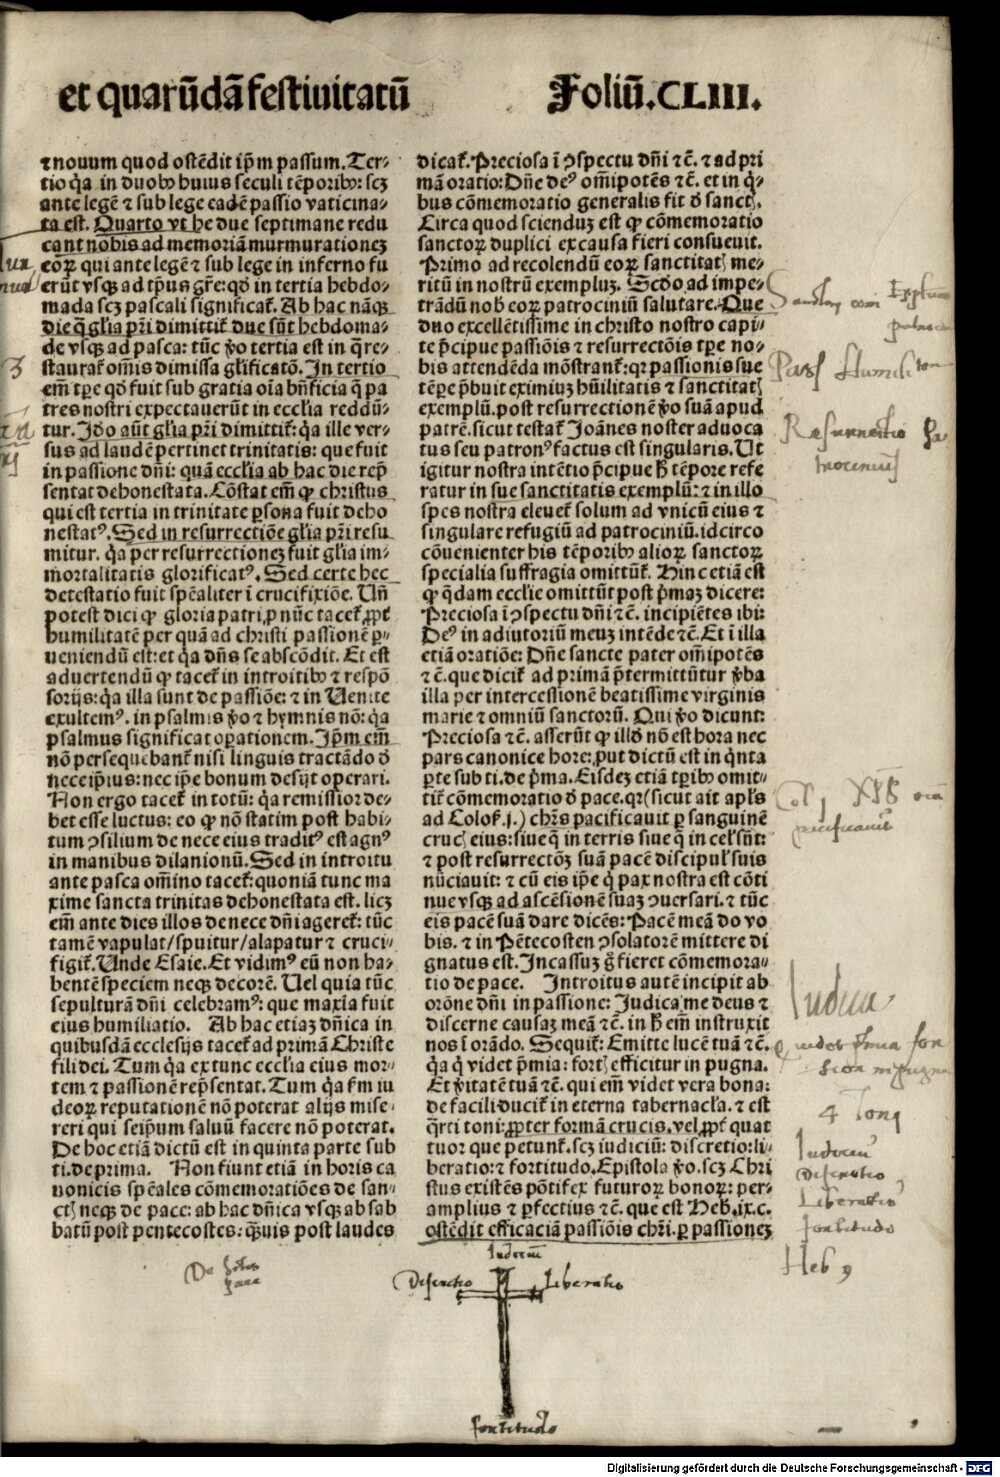 et quarūdā festiuitatū Foliū.CLIII.
⁊ nouum quod ostēdit ip̄m passum. Ter⸗
tio q̇a in duobꝰ huius seculi tēporibꝰ: scꝫ
ante legē ⁊ sub lege eadē passio vaticina⸗
ta est. Quarto vt he due septimane redu
cant nobis ad memoriā murmurationeꝫ
eoꝝ qui ante legē ⁊ sub lege in inferno fu
erūt vsqꝫ ad tp̄us gr̄e: qd̄ in tertia hebdo⸗
mada scꝫ pascali significat̄. Ab hac nāqꝫ
die q̄ gl̄ia pr̄i dimittit̄ due sūt hebdoma⸗
de vsqꝫ ad pasca: tūc v̄o tertia est in q̄ re⸗
staurat̄ om̄is dimissa gl̄ificatō. In tertio
em̄ tp̄e qd̄ fuit sub gratia oīa bn̄ficia q̄ pa
tres nostri expectauerūt in eccl̄ia reddū⸗
tur. Id̄o aūt gl̄ia pr̄i dimittit̄: q̇a ille ver⸗
sus ad laudē pertinet trinitatis: que fuit
in passione dn̄i: quā eccl̄ia ab hac die rep̄
sentat dehonestata. Cōstat em̄ ꝙ christus
qui est tertia in trinitate ꝑsona fuit deho
nestatꝰ. Sed in resurrectiōe gl̄ia pr̄i resu
mitur. q̇a per resurrectioneꝫ fuit gl̄ia im⸗
mortalitatis glorificatꝰ. Sed certe hec
detestatio fuit sp̄ealiter ī crucifixiōe. Vn̄
potest dici ꝙ gloria patri, ꝓ nūc tacet̄, ꝓpt̄
humilitatē per quā ad christi passionē ꝑ⸗
ueniendū est: et q̇a dn̄s se abscōdit. Et est
aduertendū ꝙ tacet̄ in introitibꝰ ⁊ respō
sorijs: q̇a illa sunt de passiōe: ⁊ in Uenite
exultemꝰ. in psalmis v̄o ⁊ hymnis nō: q̇a
psalmus significat oꝑationem. Ip̄m em̄
nō persequebant̄ nisi linguis tractādo d̄
nece ip̄ius: nec ip̄e bonum desijt operari.
Non ergo tacet̄ in totū: q̇a remissior de⸗
bet esse luctus: eo ꝙ nō statim post habi⸗
tum ꝯsilium de nece eius traditꝰ est agnꝰ
in manibus dilanionū. Sed in introitu
ante pasca om̄ino tacet̄: quoniā tunc ma
xime sancta trinitas dehonestata est. licꝫ
em̄ ante dies illos de nece dn̄i ageret̄: tūc
tamē vapulat/spuitur/alapatur ⁊ cruci⸗
figit̄. Unde Esaie. Et vidimꝰ eū non ha⸗
bentē speciem neqꝫ decorē. Uel quia tūc
sepulturā dn̄i celebramꝰ: que maxīa fuit
eius humiliatio. Ab hac etiaꝫ dn̄ica in
quibusdā ecclesijs tacet̄ ad primā Christe
fili dei. Tum q̇a ex tunc eccl̄ia eius mor⸗
tem ⁊ passionē rep̄sentat. Tum q̇a fm̄ iu
deoꝝ reputationē nō poterat alijs mise⸗
reri qui seip̄um saluū facere nō poterat.
De hoc etiā dictū est in quinta parte sub
ti. de prima. Non fiunt etiā in horis ca
nonicis sp̄eales cōmemoratiōes de san⸗
ctꝭ neqꝫ de pace: ab hac dn̄ica vsqꝫ ab sab
batū post pentecostes: q̄uis post laudes
dicat̄. Preciosa ī ꝯspectu dn̄i ⁊c̄. ⁊ ad pri
mā oratio: Dn̄e deꝰ om̄ipotēs ⁊c̄. et in q̇⸗
bus cōmemoratio generalis fit d̄ sanctꝭ.
Circa quod scienduꝫ est ꝙ cōmemoratio
sanctoꝝ duplici ex causa fieri consueuit.
Primo ad recolendū eoꝝ sanctitatꝭ me⸗
ritū in nostrū exempluꝫ. Scd̄o ad impe⸗
trādū nob̄ eoꝝ patrociniū salutare. Que
duo excellētissime in christo nostro capi⸗
te p̄cipue passiōis ⁊ resurrectōis tp̄e no⸗
bis attendēda mōstrant̄: qꝛ passionis sue
tēꝑe p̄buit eximiuꝫ hūilitatis ⁊ sanctitatꝭ
exemplū. post resurrectionē v̄o suā apud
patrē. sicut testat̄ Joānes noster aduoca
tus seu patronꝰ factus est singularis. Ut
igitur nostra intētio p̄cipue h̄ tēpore refe
ratur in sue sanctitatis exemplū: ⁊ in illo
spes nostra eleuet̄ solum ad vnicū eius ⁊
singulare refugiū ad patrociniū. idcirco
cōuenienter his tēporibꝰ alioꝝ sanctoꝝ
specialia suffragia omittūt̄. Hinc etiā est
ꝙ q̇dam ecclie omittūt post p̄maꝫ dicere:
Preciosa ī ꝯspectu dn̄i ⁊c̄. incipiētes ibi:
Deꝰ in adiutoriū meuꝫ intēde ⁊c̄. Et ī illa
etiā oratiōe: Dn̄e sancte pater om̄ipotēs
⁊c̄. que dicit̄ ad primā p̄termittūtur v̄ba
illa per intercessionē beatissime virginis
marie ⁊ omniū sanctorū. Qui v̄o dicunt:
Preciosa ⁊c̄. asserūt ꝙ illd̄ nō est hora nec
pars canonice hore: ꝓut dictū est in q̇nta
ꝑte sub ti. de p̄ma. Eisdeꝫ etiā tꝑibꝰ omit⸗
tit̄ cōmemoratio d̄ pace. qꝛ (sicut ait apl̄s
ad Colos̄.j.) chr̄s pacificauit ꝑ sanguinē
crucꝭ eius: siue q̄ in terris siue q̄ in cel̄ sūt:
⁊ post resurrectōꝫ suā pacē discipul̄ suis
nūciauit: ⁊ cū eis ip̄e q̇ pax nostra est cōti
nue vsqꝫ ad ascēsionē suaꝫ ꝯuersari. ⁊ tūc
eis pacē suā dare dicēs: Pacē meā do vo
bis. ⁊ in Pētecosten ꝯsolatorē mittere di
gnatus est. Incassuꝫ g̊ fieret cōmemora⸗
tio de pace. Introitus autē incipit ab
orōne dn̄i in passione: Judica me deus ⁊
discerne causaꝫ meā ⁊c̄. in h̄ em̄ instruxit
nos ī orādo. Sequit̄: Emitte lucē tuā ⁊c̄.
q̇a q̇ videt p̄mia: fortꝭ efficitur in pugna.
Et v̄itatē tuā ⁊c̄. qui em̄ videt vera bona:
de facili ducit̄ in eterna tabernacl̄a. ⁊ est
q̄rti toni: ꝓpter formā crucis. vel ꝓpt̄ quat
tuor que petunt̄. scꝫ iudiciū: discretio: li⸗
beratio: ⁊ fortitudo. Epistola v̄o. scꝫ Chri
stus existēs pōtifex futuroꝝ bonoꝝ: per⸗
amplius ⁊ ꝑfectius ⁊c̄. que est Heb̄.ix.c.
ostēdit efficaciā passiōis chr̄i. ꝑ passioneꝫ
3
Judica
4 Toni
Judicium
Discretio
Liberatio
Fortitudo
Heb 9
Judicium
Discretio Liberatio
fortitudo
Digitalisierung gefördert durch die Deutsche Forschungsgemeinschaft - DFG